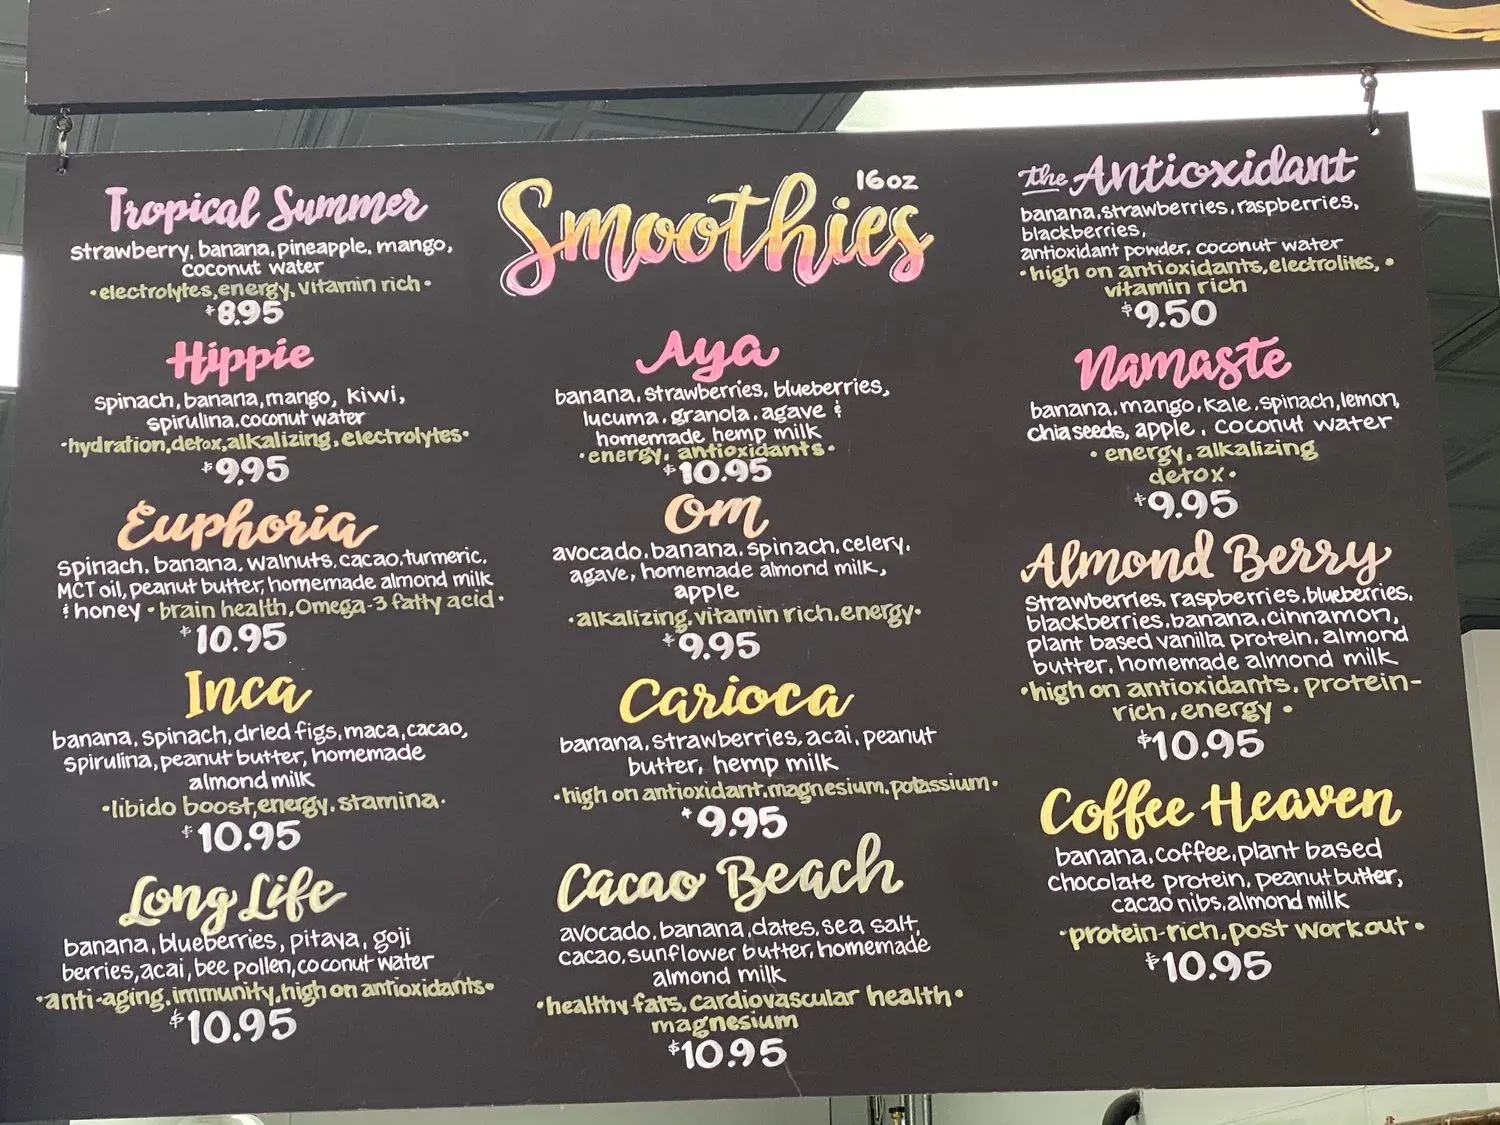 Smoothies
16oz
Tropical Summer
strawberry, banana, pineapple, mango,
coconut water
•electrolytes, energy, vitamin rich•
$8.95
Hippie
spinach, banana, mango, kiwi,
spirulina, coconut water
•hydration, detox, alkalizing, electrolytes•
$9.95
Euphoria
spinach, banana, walnuts, cacao, turmeric,
MCT oil, peanut butter, homemade almond milk
& honey •brain health, Omega-3 fatty acid•
$10.95
Inca
banana, spinach, dried figs, maca, cacao,
spirulina, peanut butter, homemade
almond milk
•libido boost, energy, stamina•
$10.95
Long Life
banana, blueberries, pitaya, goji
berries, acai, bee pollen, coconut water
•anti-aging, immunity, high on antioxidants•
$10.95
Aya
banana, strawberries, blueberries,
lucuma, granola, agave &
homemade hemp milk
•energy, antioxidants•
$10.95
Om
avocado, banana, spinach, celery,
agave, homemade almond milk,
apple
•alkalizing, vitamin rich, energy•
$9.95
Carioca
banana, strawberries, acai, peanut
butter, hemp milk
•high on antioxidant, magnesium, potassium•
$9.95
Cacao Beach
avocado, banana, dates, sea salt,
cacao, sunflower butter, homemade
almond milk
•healthy fats, cardiovascular health•
magnesium
$10.95
the Antioxidant
banana, strawberries, raspberries,
blackberries,
antioxidant powder, coconut water
•high on antioxidants, electrolites,•
vitamin rich
$9.50
Namaste
banana, mango, kale, spinach, lemon,
chia seeds, apple, coconut water
•energy, alkalizing
detox•
$9.95
Almond Berry
strawberries, raspberries, blueberries,
blackberries, banana, cinnamon,
plant based vanilla protein, almond
butter, homemade almond milk
•high on antioxidants, protein-
rich, energy•
$10.95
Coffee Heaven
banana, coffee, plant based
chocolate protein, peanut butter,
cacao nibs, almond milk
•protein-rich, post workout•
$10.95